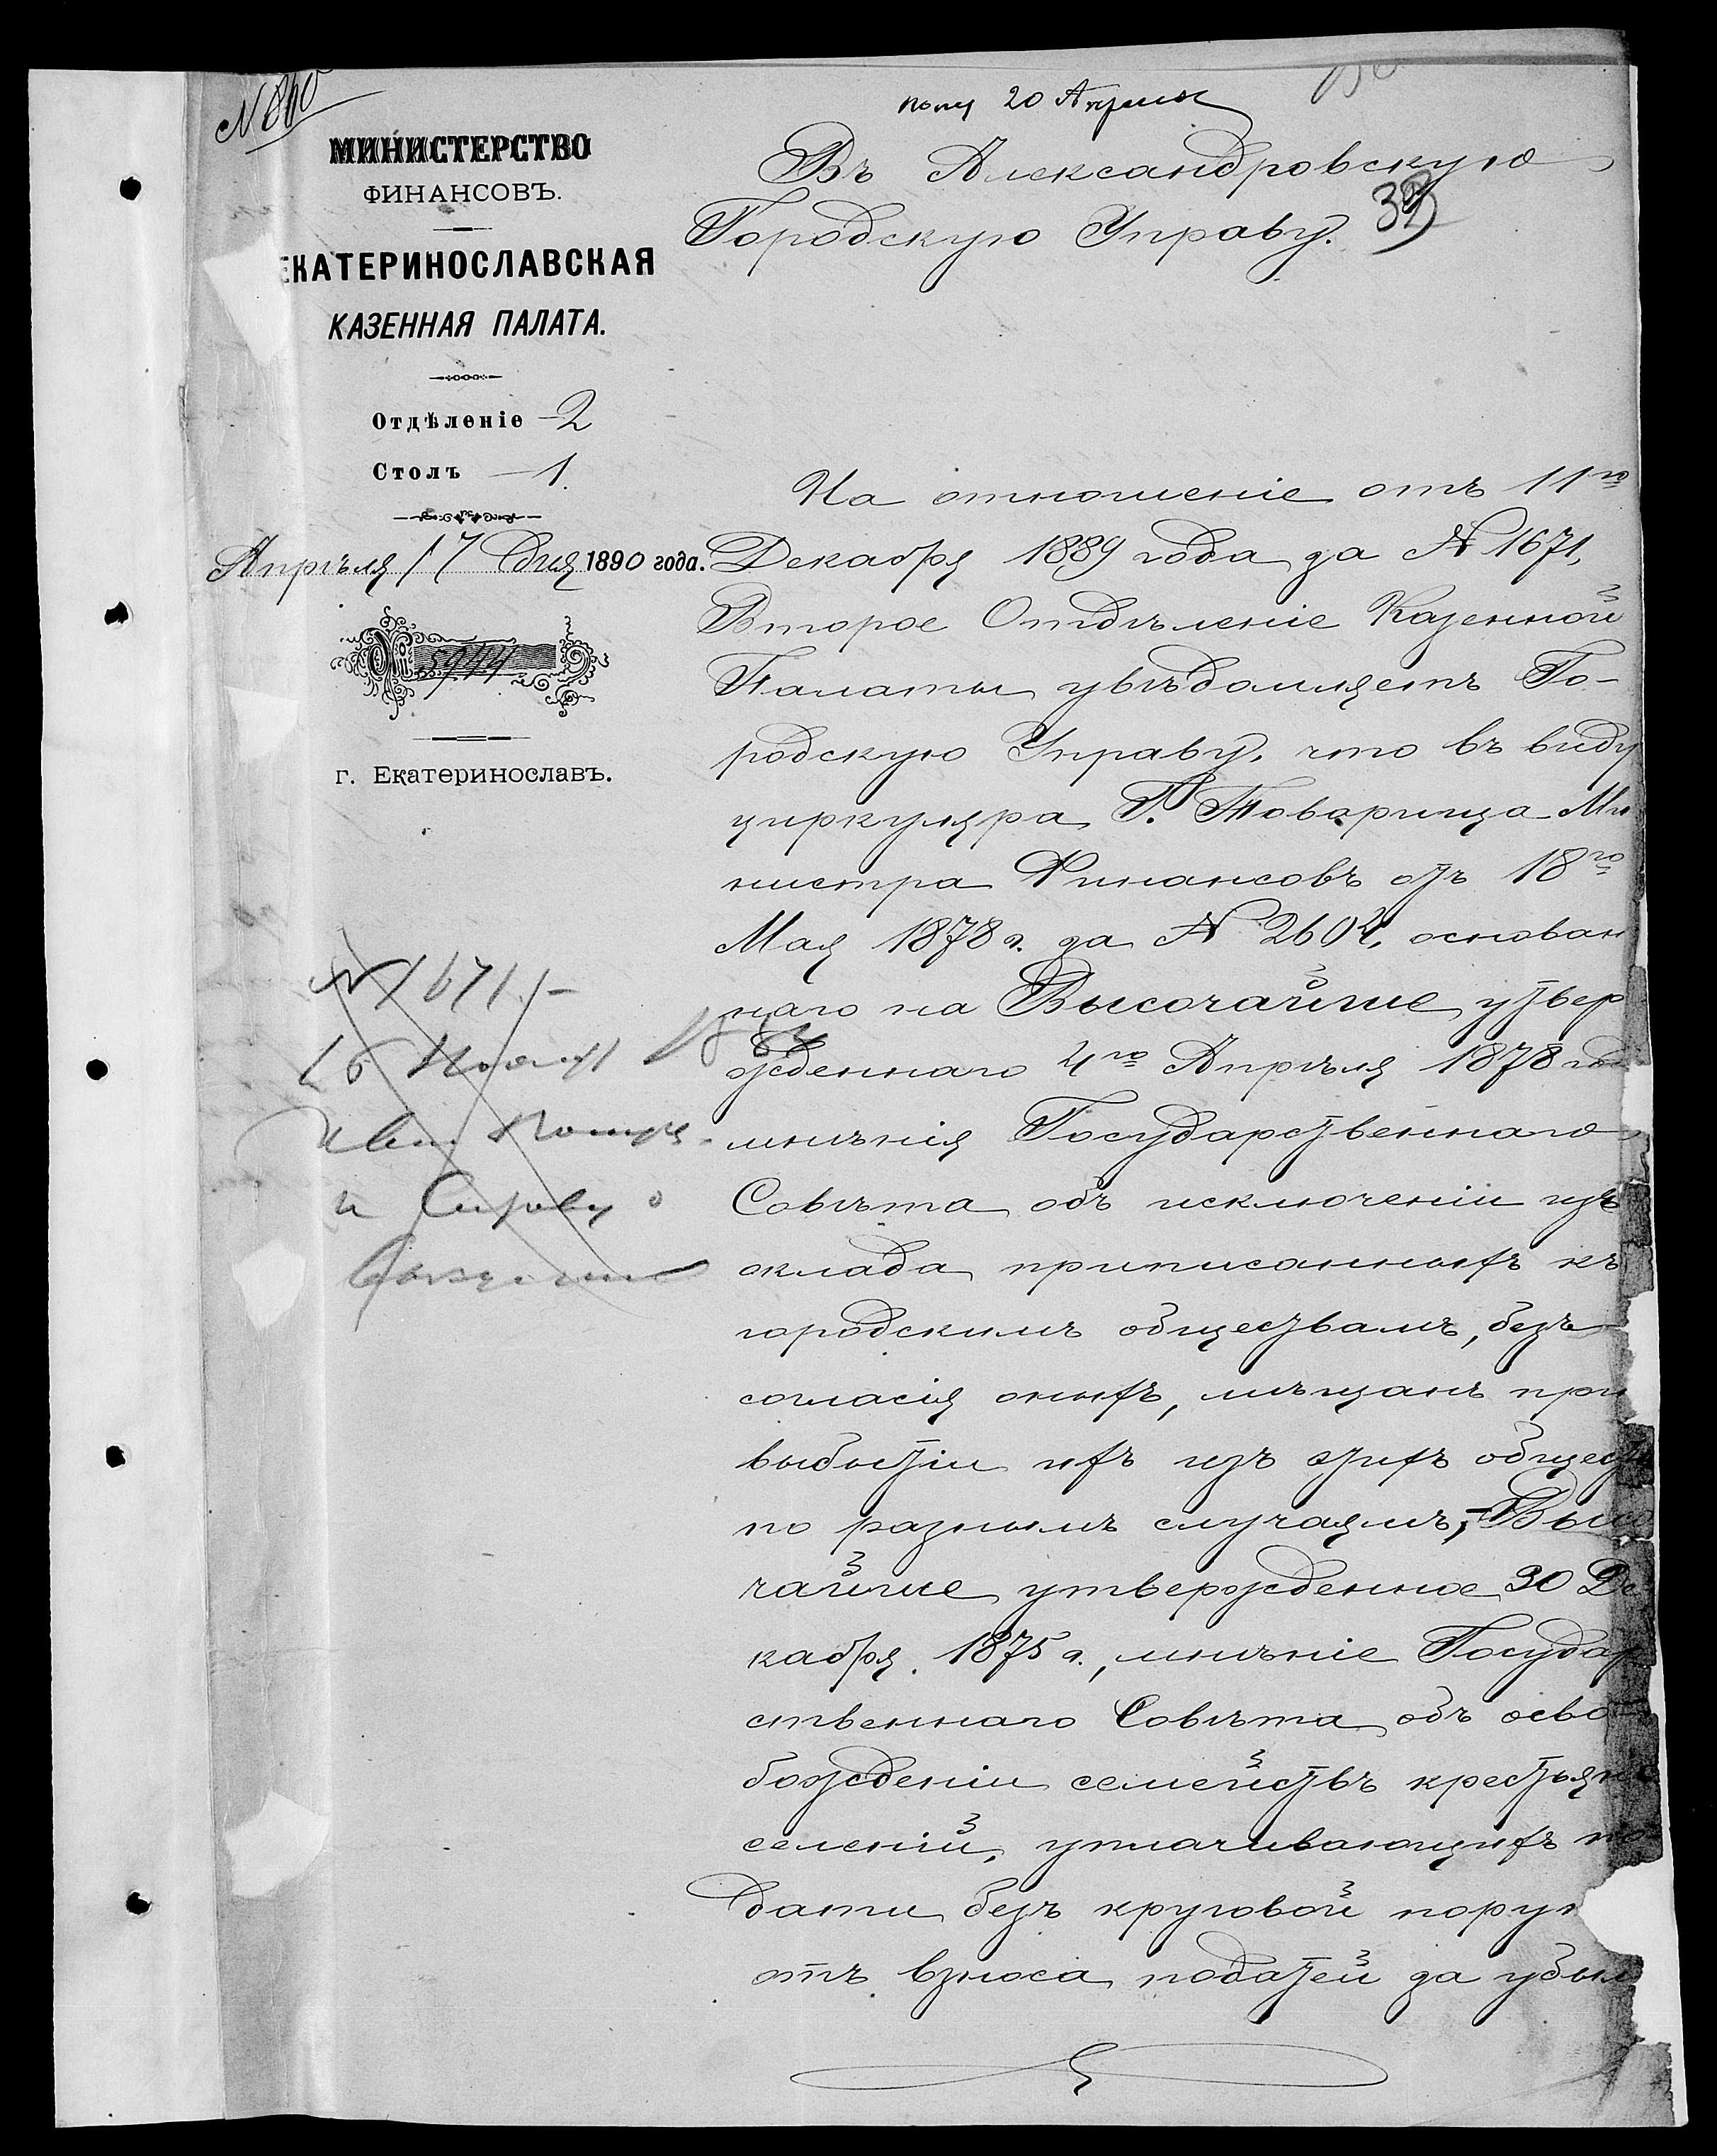 № 840
МИНИСТЕРСТВО
ФИНАНСОВЪ.
ЕКАТЕРИНОСЛАВСКАЯ
КАЗЕННАЯ ПАЛАТА.
Отдѣленіе 2
Столъ 1.
Апрѣля 17 дня 1890 года.
№ 5944
г. Екатеринославъ.
№ 1671
пол 20 Апрѣля
Въ Александровскую
Городскую Управу.
На отношеніе отъ 11го
Декабря 1889 года за № 1671,
Второе Отдѣленіе Казенной
Палаты увѣдомляетъ Го-
родскую Управу, что въ виду
циркуляра Г. Товарища Ми
нистра Финансовъ отъ 18го
Мая 1878 г. за № 2602, основан
наго на Высочайше утвер
жденнаго 4го Апрѣля 1878 года
мнѣнія Государственнаго
Совѣта объ исключеніи изъ
оклада приписанныхъ къ
городскимъ обществамъ, безъ
согласія оныхъ, мѣщанъ при
выбытіи ихъ изъ этихъ обществ
по разнымъ случаямъ, - Высо
чайше утвержденное 30 Де
кабря 1875 г., мнѣніе Государ
ственнаго Совѣта объ осво-
божденіи семействъ крестьянъ
селеній, уплачивающихъ по
дати безъ круговой порук
отъ взноса податей за убыл